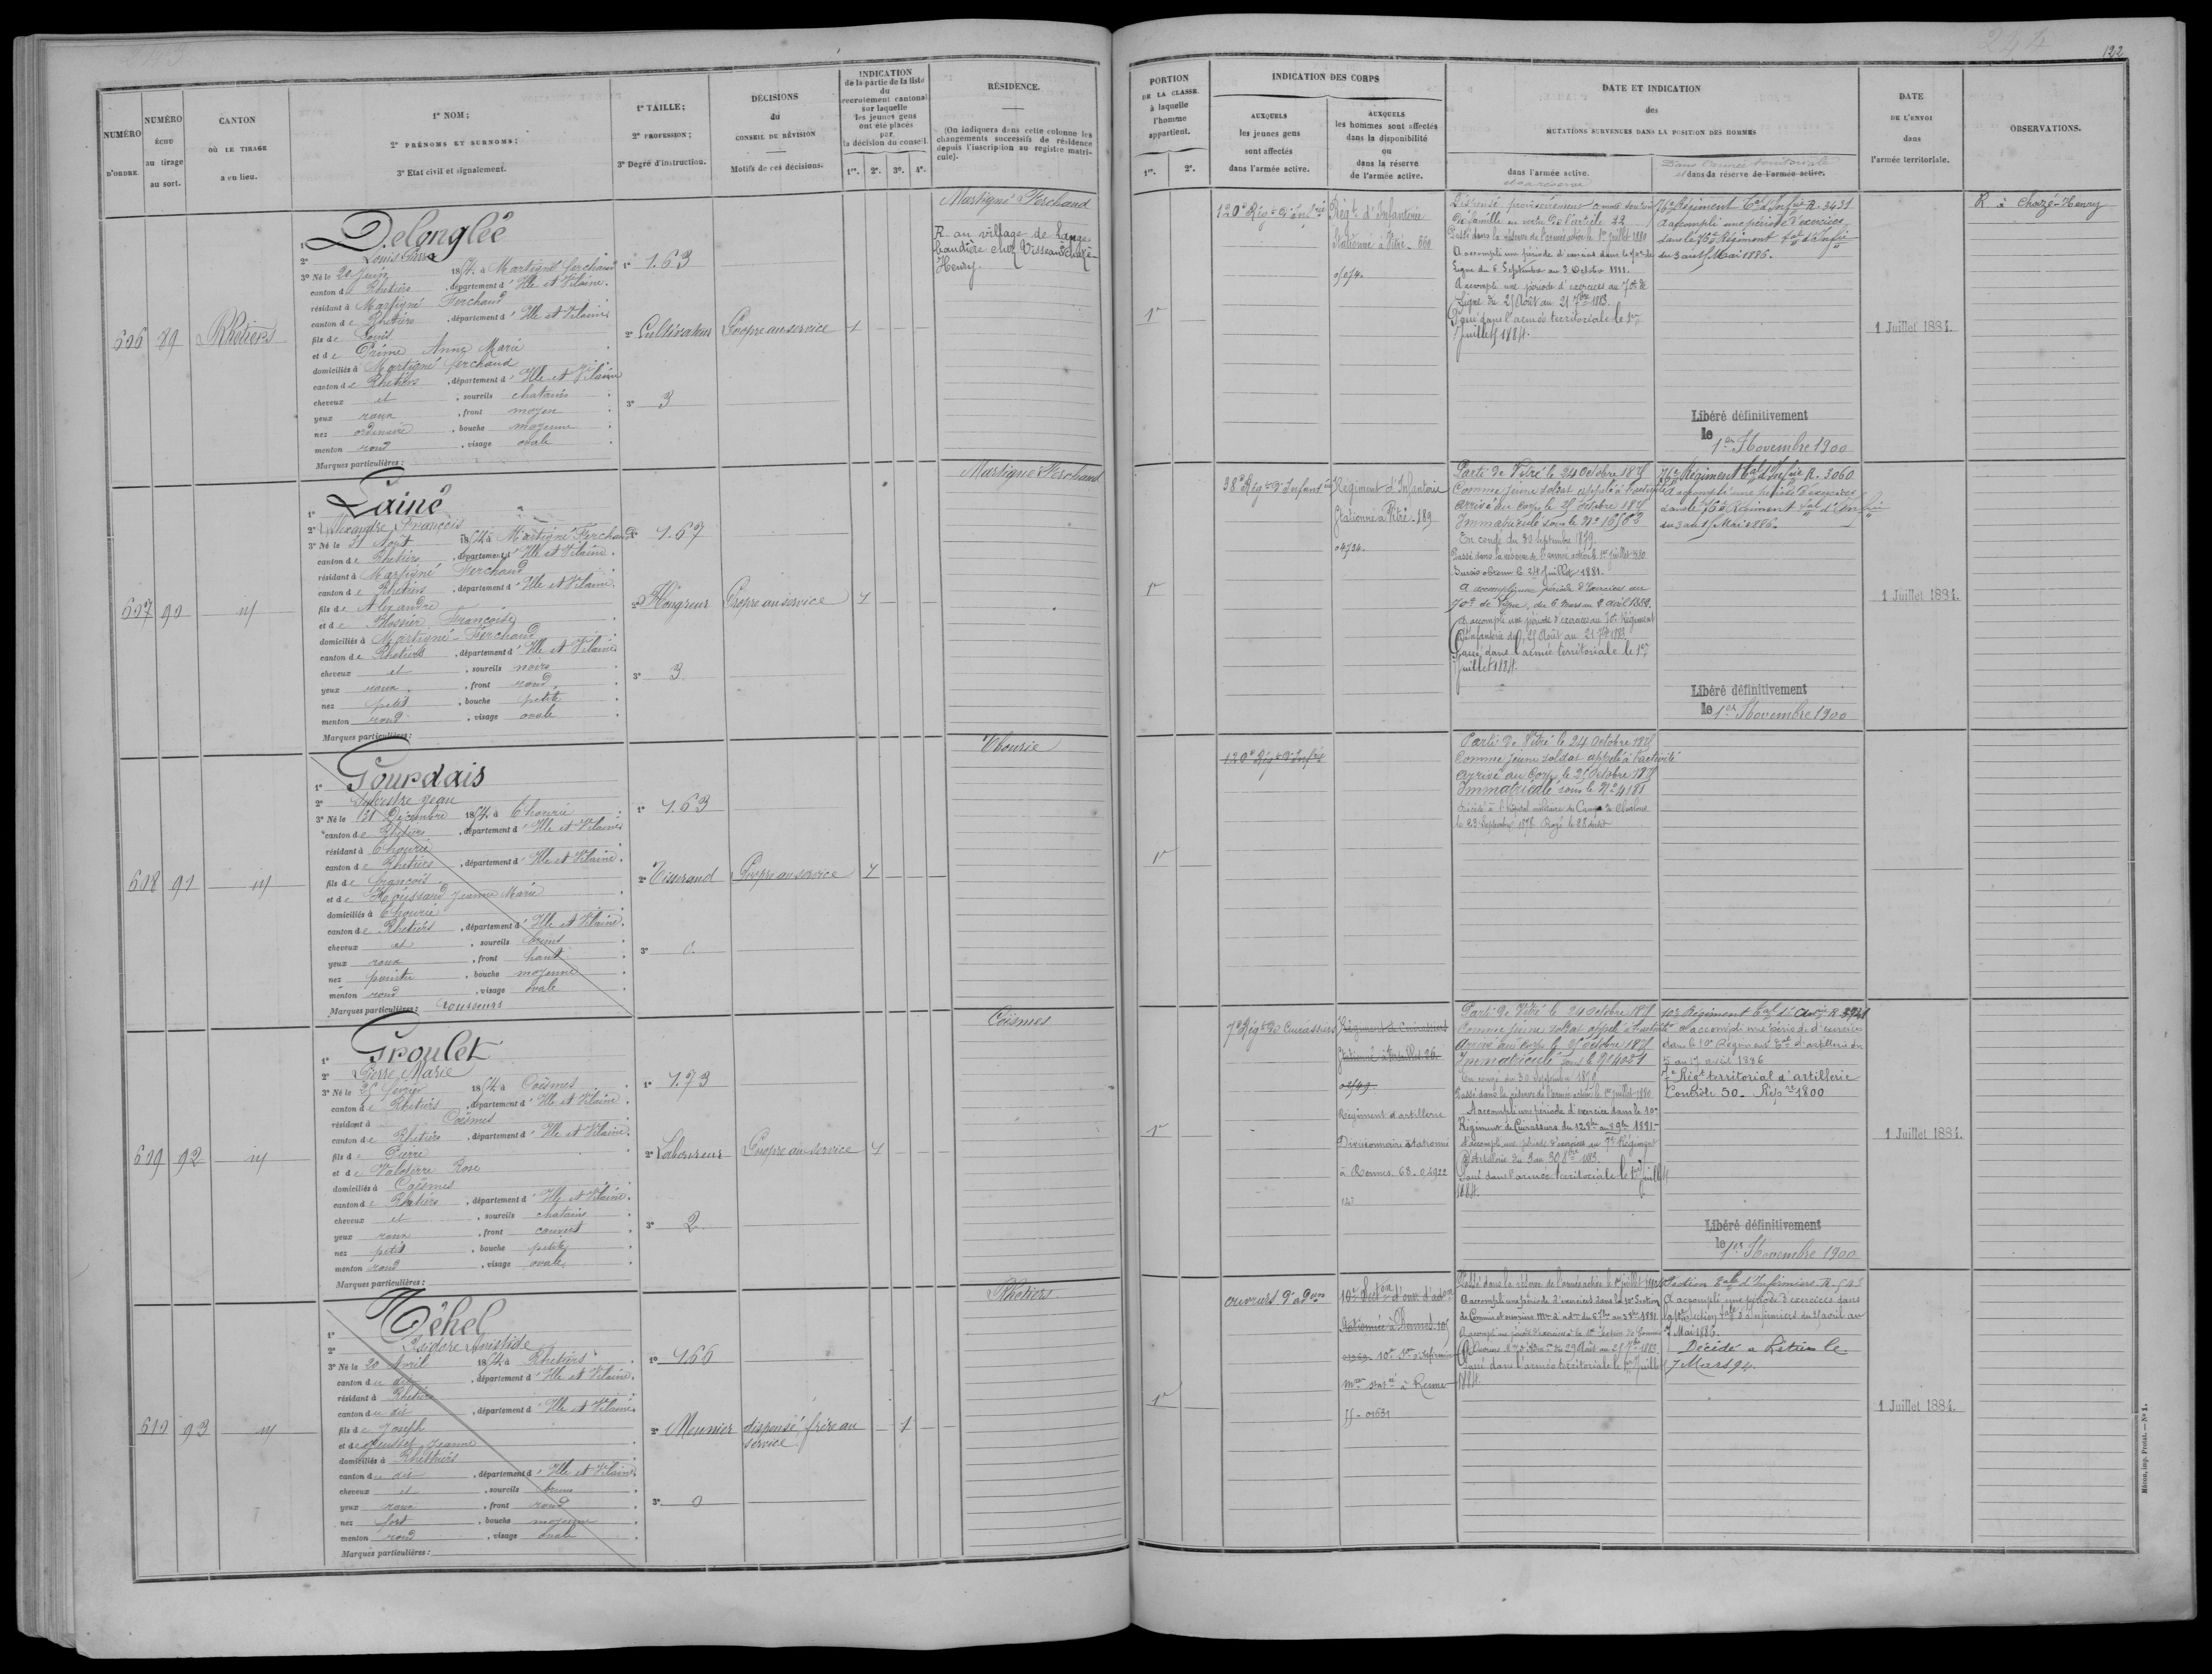 244
122
NUMÉRO D'ORDRE.
NUMÉRO ÉCHU au tirage au sort.
CANTON OÙ LE TIRAGE a eu lieu.
1° NOM;
2° PRÉNOMS ET SURNOMS;
3° Etat civil et signalement.
1° TAILLE;
2° PROFESSION;
3° Degré d'instruction.
DÉCISIONS du CONSEIL DE RÉVISION
Motifs de ces décisions.
INDICATION
de la partie de la liste
du
recrutement cantonal
sur laquelle
les jeunes gens
ont été placés
par
la décision du conseil.
1re. 2e. 3e. 4e.
RÉSIDENCE.
(On indiquera dans cette colonne les
changements successifs de résidence
depuis l'inscription au registre matri-
cule).
PORTION
DE LA CLASSE
à laquelle
l'homme
appartient.
1re. 2e.
INDICATION DES CORPS
AUXQUELS
les jeunes gens
sont affectés
dans l'armée active.
AUXQUELS
les hommes sont affectés
dans la disponibilité
ou
dans la réserve
de l'armée active.
DATE ET INDICATION
des
MUTATIONS SURVENUES DANS LA POSITION DES HOMMES
dans l'armée active.
et sa réserve
Dans l'armée territoriale
et dans sa réserve de l'armée active.
DATE
DE L'ENVOI
dans
l'armée territoriale.
OBSERVATIONS.
606 89 Rhétiers
1° Delonglée
2° Louis Pierre
3° Né le 20 Juin 1854 à Martigné ferchaud
canton de Rhetiers, département d'Ille et Vilaine.
résidant à Martigné Ferchaud
canton de Rhetiers, département d'Ille et Vilaine
fils de Louis
et de Prime Anne Marie
domiciliés à Martigné ferchaud
canton de Rhetiers, département d'Ille et Vilaine
cheveux et, sourcils chatains
yeux roux, front moyen
nez ordinaire, bouche moyenne
menton rond, visage ovale
Marques particulières:
1° 1.63
2° Cultivateur
3° 3
Propre au service
1
Martigné Ferchaud
R au village de
chez Henry.
1re
120e Régt d'Infrie
Régt d'Infanterie
Stationné à Vitré - 660
Dispensé provisoirement comme soutien
de famille en vertu de l'article 22
Passé dans la réserve de l'armée active le 1er juillet 1880
A accompli une période d'exercices dans le 70e de
Ligne du 5 Septembre au 3 Octobre 1881.
A accompli une période d'exercices au 70e de
Ligne du 25 Août au 21 7bre 1883.
Passé dans l'armée territoriale le 1er
Juillet 1884.
76e Régiment Tal d'Infie R. 3431
A accompli une période d'exercices
dans le 76e Régiment Tal d'Infie
du 3 au 15 Mai 1886.
Libéré définitivement
le 1er Novembre 1900
1 Juillet 1884.
R à Chazé-Henry
607 90 id
1° Lainé
2° Alexandre François
3° Né le 31 Août 1854 à Martigné Ferchaud
canton de Rhetiers, département d'Ille et Vilaine.
résidant à Martigné Ferchaud
canton de Rhetiers, département d'Ille et Vilaine.
fils de Alexandre
et de Françoise
domiciliés à Martigné-Ferchaud
canton de Rhetiers, département d'Ille et Vilaine
cheveux et, sourcils noirs
yeux roux, front rond
nez petit, bouche petite
menton rond, visage ovale
Marques particulières:
1° 1.67
2° Hongreur
3° 3
Propre au service
1
Martigné Ferchaud
1re
38e Régt d'Infanterie
Régiment d'Infanterie
Stationné à Vitré - 189
Parti de Vitré le 24 Octobre 1875
Comme jeune soldat appelé à l'activité
arrivé au corps le 25 Octobre 1875
Immatriculé sous le No
En congé du 30 Septembre 1879.
Passé dans la réserve de l'armée active le 1er juillet 1880
Sursis obtenu le 24 Juillet 1881.
A accompli une période d'exercices au
70e de Ligne, du 6 mars au 2 avril 1882.
A accompli une période d'exercices au 70e Régiment
d'Infanterie du 25 Août au 21 7bre 1883
Passé dans l'armée territoriale le 1er
Juillet 1884.
76e Régiment Tal d'Infie R. 3060
A accompli une période d'exercices
dans le 76e Régiment Tal d'Infie
du 3 au 15 Mai 1886.
Libéré définitivement
le 1er Novembre 1900
1 Juillet 1884.
608 91 id
1° Gourdais
2° Sylvestre Jean
3° Né le 31 Décembre 1854 à Thourie
canton de Rhetiers, département d'Ille et Vilaine
résidant à Thourie
canton de Rhetiers, département d'Ille et Vilaine.
fils de François
et de Houssard Jeanne Marie
domiciliés à Thourie
canton de Rhetiers, département d'Ille et Vilaine.
cheveux et, sourcils bruns
yeux roux, front haut
nez pointu, bouche moyenne
menton rond, visage ovale
Marques particulières: rousseurs
1° 1.63
2° Tisserand
3° 0.
Propre au service
1
Thourie
1re
120e Régt d'Infrie
Parti de Vitré le 24 Octobre 1875
Comme jeune soldat appelé à l'activité
arrivé au Corps le 25 Octobre 1875
Immatriculé sous le No 4181
Décédé à l'hôpital militaire du Camp de Chalons
le 23 Septembre 1876. Rayé le 28 dudit
609 92 id
1° Groulet
2° Pierre Marie
3° Né le 25 février 1854 à Coësmes
canton de Rhetiers, département d'Ille et Vilaine.
résidant à Coësmes
canton de Rhetiers, département d'Ille et Vilaine.
fils de Pierre
et de Valotierre Rose
domiciliés à Coësmes
canton de Rhetiers, département d'Ille et Vilaine.
cheveux et, sourcils chatains
yeux roux, front couvert
nez petit, bouche petite
menton rond, visage ovale
Marques particulières:
1° 1.73
2° Laboureur
3° 2
Propre au service
1
Coësmes
1re
7e Régt de Cuirassiers
Régiment de Cuirassiers
Régiment d'artillerie
Divisionnaire stationné
à Rennes. 68. 04922
Parti de Vitré le 24 octobre 1875
Comme jeune soldat appelé à l'activité
Arrivé au corps le 25 octobre 1875
Immatriculé sous le No 4051
En congé du 30 Septembre 1879
Passé dans la réserve de l'armée active le 1er juillet 1880
A accompli une période d'exercice dans le 10e
Régiment de Cuirassiers du 12 8bre au 8 9bre 1881.
A accompli une période d'exercices au Régiment
d'Artillerie du 3 au 30 8bre 1883.
Passé dans l'armée territoriale le 1er Juillet
1884.
10e Régiment Tal d'Artie R
A accompli une période d'exercices
dans le 10e Régiment Tal d'artillerie du
au 17 avril 1886
7e Régt territorial d'artillerie
Contrôle 50. Rép re 1800
Libéré définitivement
le 1er Novembre 1900
1 Juillet 1884.
610 93 id
1° Téhel
2° Isidore Aristide
3° Né le 20 Avril 1854 à Rhetiers
canton du dit, département d'Ille et Vilaine.
résidant à Rhetiers
canton du dit, département d'Ille et Vilaine
fils de Joseph
et de Jeanne
domiciliés à Rhetiers
canton du dit, département d'Ille et Vilaine
cheveux et, sourcils bruns
yeux roux, front rond
nez fort, bouche moyenne
menton rond, visage ovale
Marques particulières:
1° 1.66
2° Meunier
3° 0
dispensé, frère au
service
1
Rhetiers
1re
ouvriers d'adon
10e Secton d'ouv. d'adon
stationnée à Rennes
à Rennes
Passé dans la réserve de l'armée active le 1er juillet
A accompli une période d'exercices dans la 10e Section
Passé dans l'armée territoriale le 1er Juillet
1884.
Section Tale d'Infirmiers R.
A accompli une période d'exercices dans
la 10e Section Tale d'Infirmiers du avril au
7 Mai 1886.
Décédé à le
7 Mars 94.
1 Juillet 1884.
Mâcon, imp. Protat. — No 1.